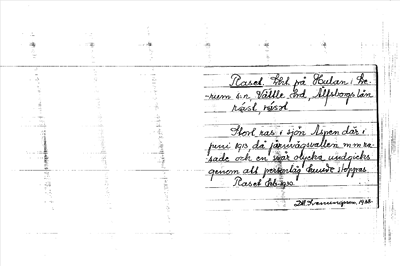 Raset, Ebd på Hulan i Le-
rum sn, Vättle hd, Älfsborgs län
ráset, ráset
Stort ras i sjön Aspen där i
juni 1913, då järnvägsvallen m m ra-
sade och en svår olycka undgicks
genom att persontåg kunde stoppas
Raset 1913.
1938.